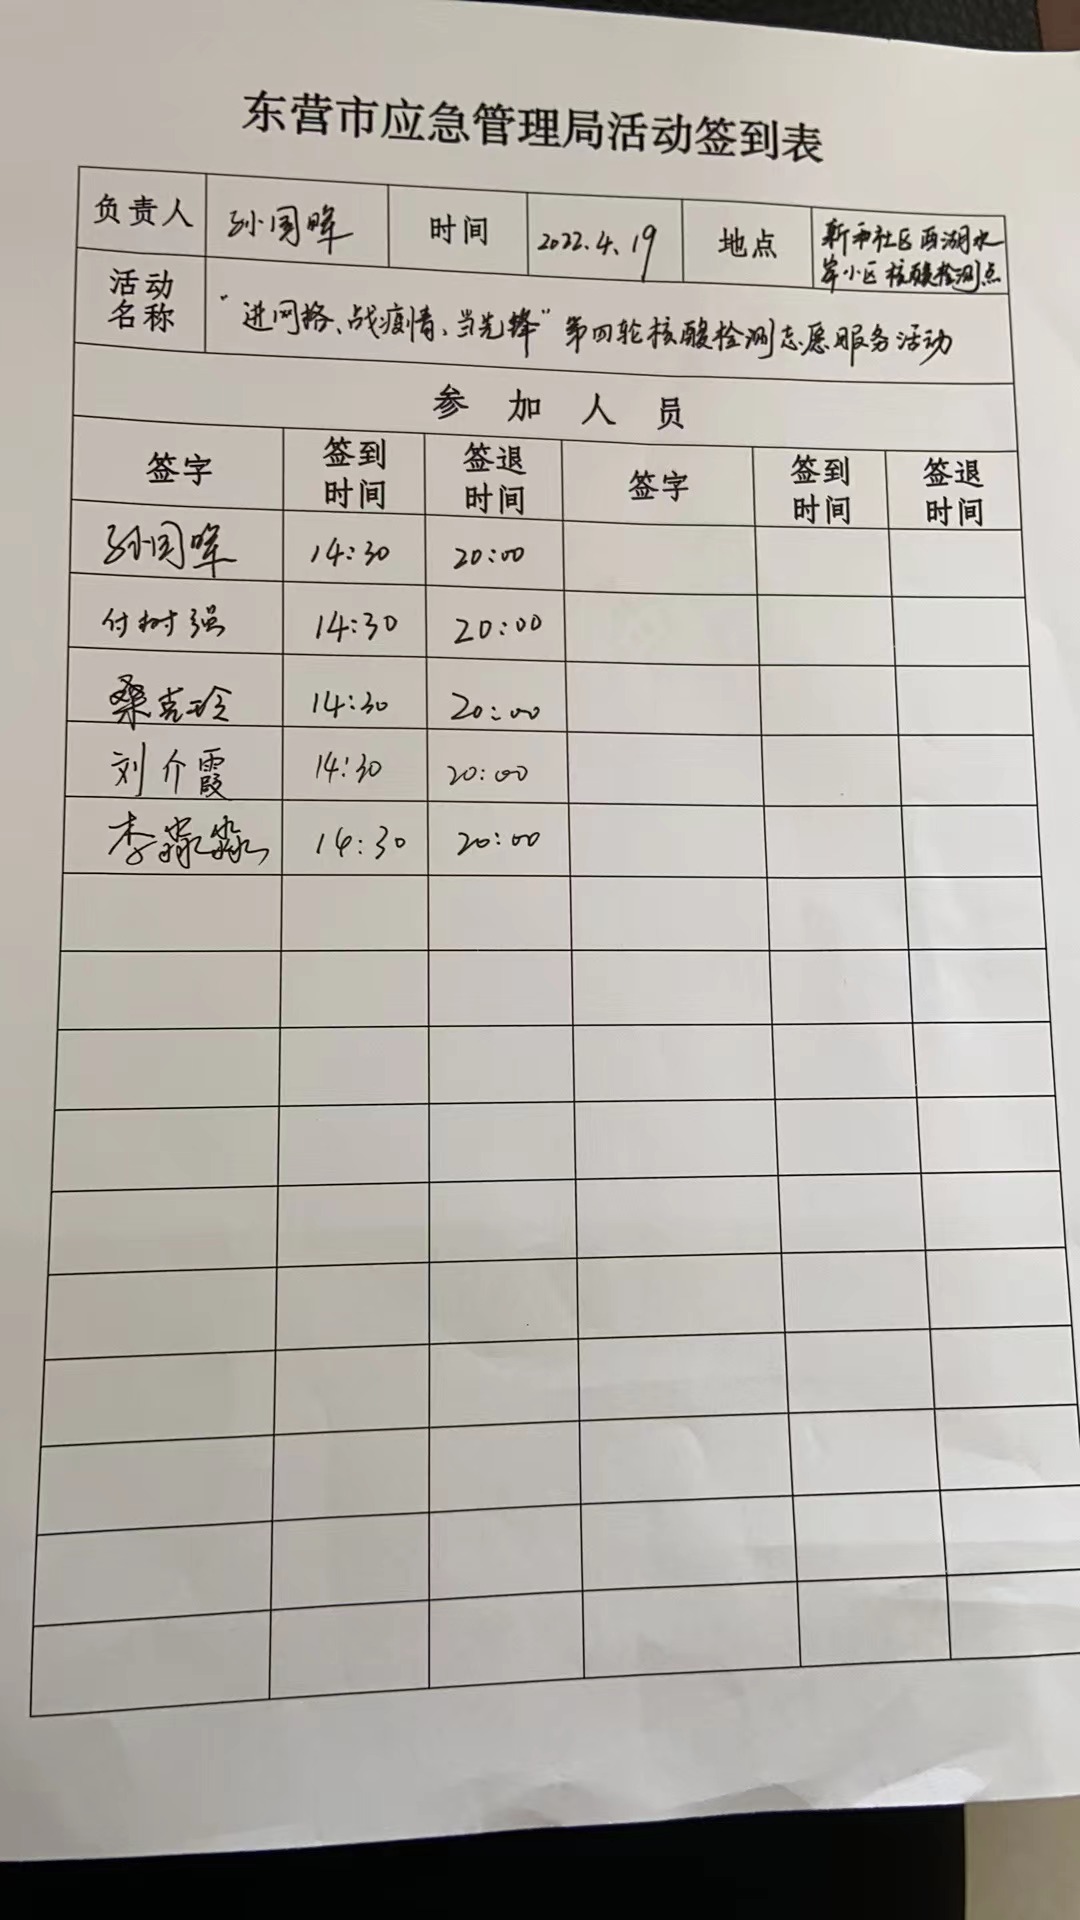 东营市应急管理局活动签到表
负责人 孙国晖 时间 2022.4.19 地点 新和社区西湖水
岸小区核酸检测点
活动
名称
“进网格、战疫情、当先锋”第四轮核酸检测志愿服务活动
参加人员
签字 签到时间 签退时间 签字 签到时间 签退时间
孙国晖 14:30 20:00
付树强 14:30 20:00
桑克玲 14:30 20:00
刘介霞 14:30 20:00
李淼淼 14:30 20:00